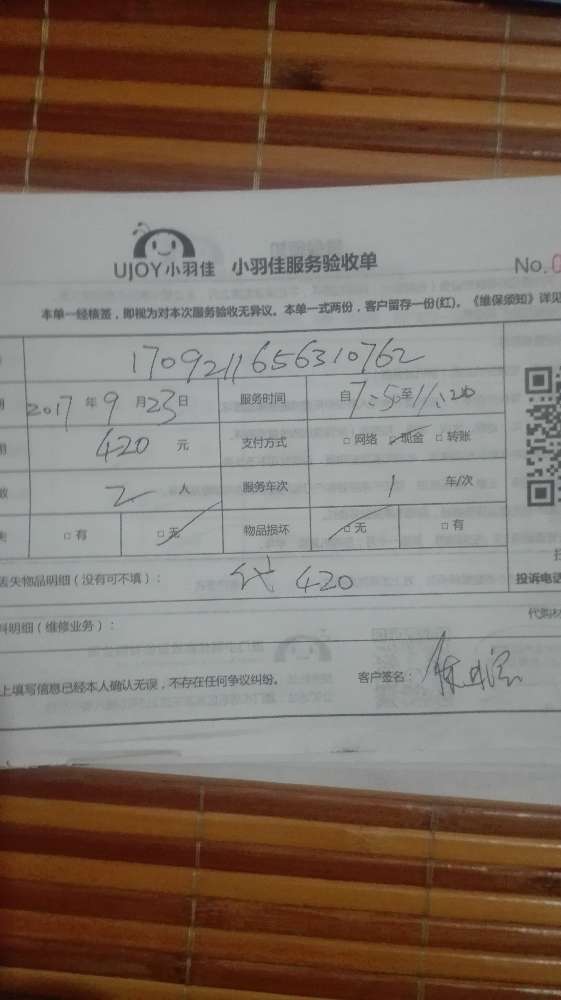 UJOY小羽佳 小羽佳服务验收单 No.0
本单一经核签，即视为对本次服务验收无异议。本单一式两份，客户留存一份(红)。《维保须知》详见
1709211656310762
2017 年 9 月 23 日 服务时间 自 7:50 至 11:20
420 元 支付方式 □ 网络 □ 现金 □ 转账
2 人 服务车次 1 车/次
□ 有 □ 无 物品损坏 □ 无 □ 有
丢失物品明细（没有可不填）： 代 420 投诉电话
料明细（维修业务）： 代购材
上填写信息已经本人确认无误，不存在任何争议纠纷。 客户签名：